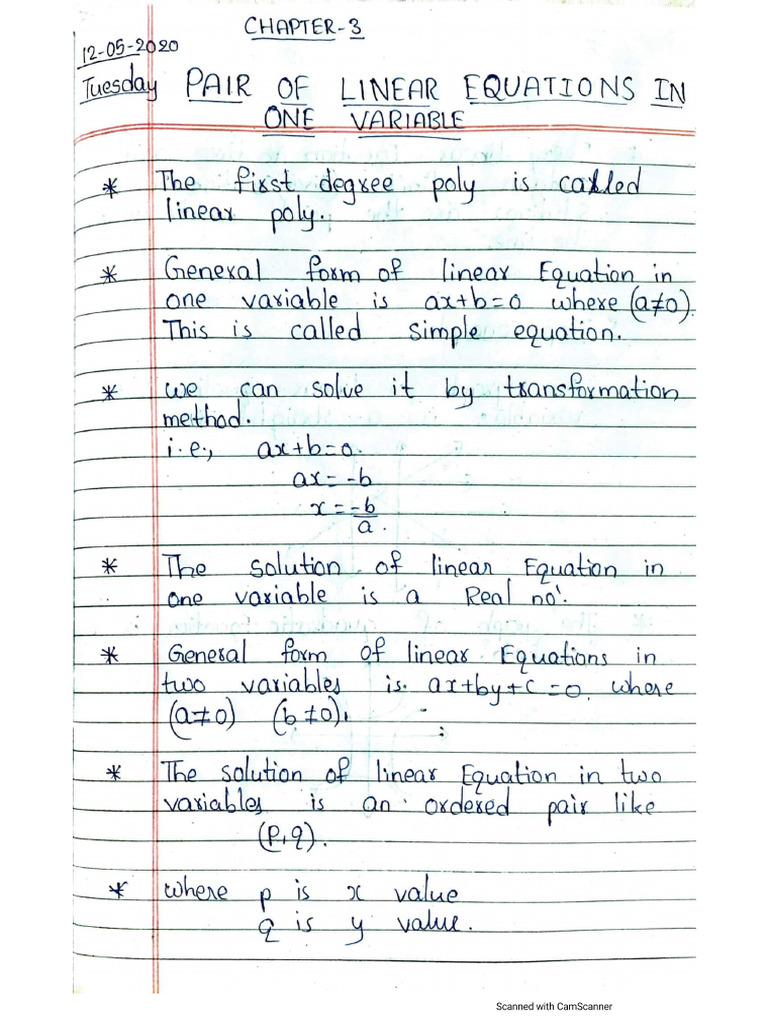 CHAPTER-3
12-05-2020
Tuesday PAIR OF LINEAR EQUATIONS IN
ONE VARIABLE
* The first degree poly is called
linear poly.
* General form of linear Equation in
one variable is ax+b=0 where (a≠0).
This is called simple equation.
* we can solve it by transformation
method.
i.e., ax+b=0.
ax=-b
x=-b/a.
* The solution of linear Equation in
one variable is a Real no'.
* General form of linear Equations in
two variables is. ax+by+c=0. where
(a≠0) (b≠0).
* The solution of linear Equation in two
variables is an ordered pair like
(p,q).
* where p is x value
q is y value.
Scanned with CamScanner